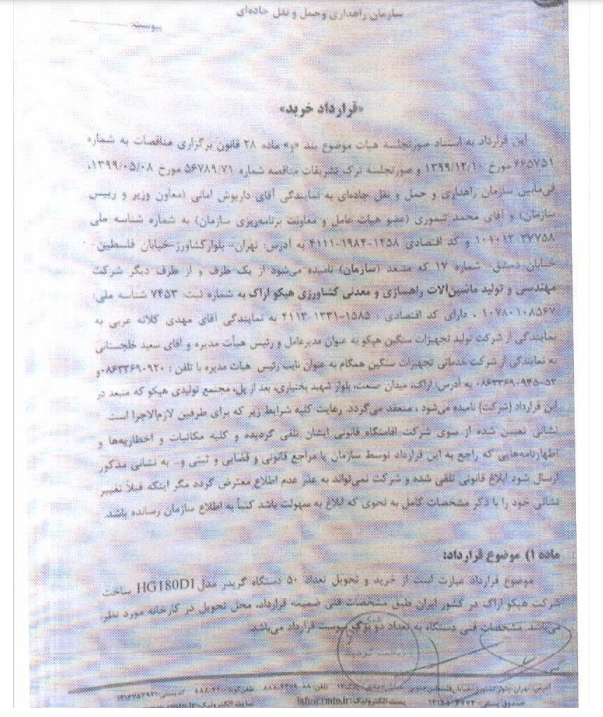 سازمان راهداری و حمل و نقل جاده‌ای
پیوست
«قرارداد خرید»
این قرارداد به استناد صورتجلسه هیات موضوع بند «و» ماده ۲۸ قانون برگزاری مناقصات به شماره
۴۶۵۷۵۱ مورخ ۱۳۹۹/۱۲/۱۰ و صورتجلسه ترک تشریفات مناقصه شماره ۵۶۷۸۹/۷۱ مورخ ۱۳۹۹/۰۵/۰۸،
فی‌مابین سازمان راهداری و حمل و نقل جاده‌ای به نمایندگی آقای داریوش امانی (معاون وزیر و رییس
سازمان) و آقای محمد تیموری (عضو هیات عامل و معاونت برنامه‌ریزی سازمان) به شماره شناسه ملی
و کد اقتصادی ۱۲۵۸-۱۹۸۴-۴۱۱۱ به آدرس: تهران- بلوارکشاورز-خیابان فلسطین-
خیابان دمشق- شماره ۱۷ که منبعد (سازمان) نامیده می‌شود از یک طرف و از طرف دیگر شرکت
مهندسی و تولید ماشین‌آلات راهسازی و معدنی کشاورزی هپکو اراک به شماره ثبت: ۷۴۵۳ شناسه ملی:
۱۰۷۸۰۱۰۸۵۶۷ ، دارای کد اقتصادی : ۱۵۸۵-۱۳۳۱-۴۱۱۳ به نمایندگی آقای مهدی کلاته عربی به
نمایندگی از شرکت تولید تجهیزات سنگین هپکو به عنوان مدیرعامل و رئیس هیأت مدیره و آقای سعید خلجستانی
به نمایندگی از شرکت خدماتی تجهیزات سنگین همگام به عنوان نایب رئیس هیات مدیره با تلفن : ۰۸۶۳۳۶۹۰۹۲۰و
به آدرس: اراک، میدان صنعت، بلوار شهید بختیاری، بعد از پل، مجتمع تولیدی هپکو که منبعد در
این قرارداد (شرکت) نامیده می‌شود ، منعقد می‌گردد. رعایت کلیه شرایط زیر که برای طرفین لازم‌الاجرا است.
نشانی تعیین شده از سوی شرکت اقامتگاه قانونی ایشان تلقی گردیده و کلیه مکاتبات و اخطاریه‌ها و
اظهارنامه‌هایی که راجع به این قرارداد توسط سازمان یا مراجع قانونی و قضایی و ثبتی و.. به نشانی مذکور
ارسال شود ابلاغ قانونی تلقی شده و شرکت نمی‌تواند به عذر عدم اطلاع معترض گردد مگر اینکه قبلاً تغییر
نشانی خود را با ذکر مشخصات کامل به نحوی که ابلاغ به سهولت باشد کتباً به اطلاع سازمان رسانده باشد.
ماده ۱) موضوع قرارداد:
موضوع قرارداد عبارت است از خرید و تحویل تعداد ۵۰ دستگاه گریدر مدل HG180D1 ساخت
شرکت هپکو اراک در کشور ایران طبق مشخصات فنی ضمیمه قرارداد، محل تحویل در کارخانه مورد نظر
می‌باشد. مشخصات فنی دستگاه به تعداد دو برگ پیوست قرارداد می‌باشد.